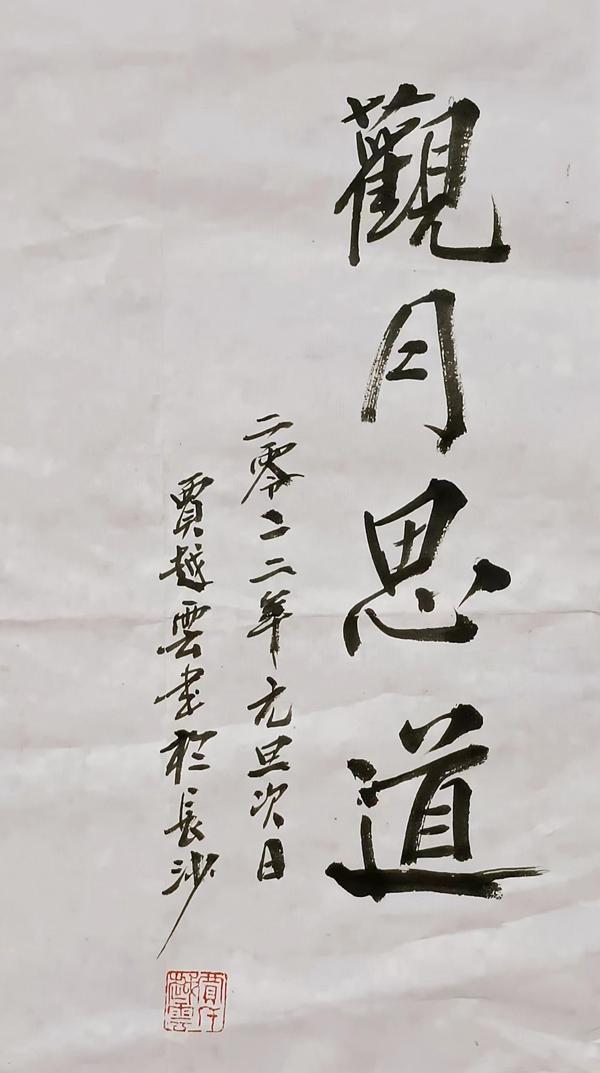 觀月思道
二零二二年元旦次日
賈越雲書於長沙